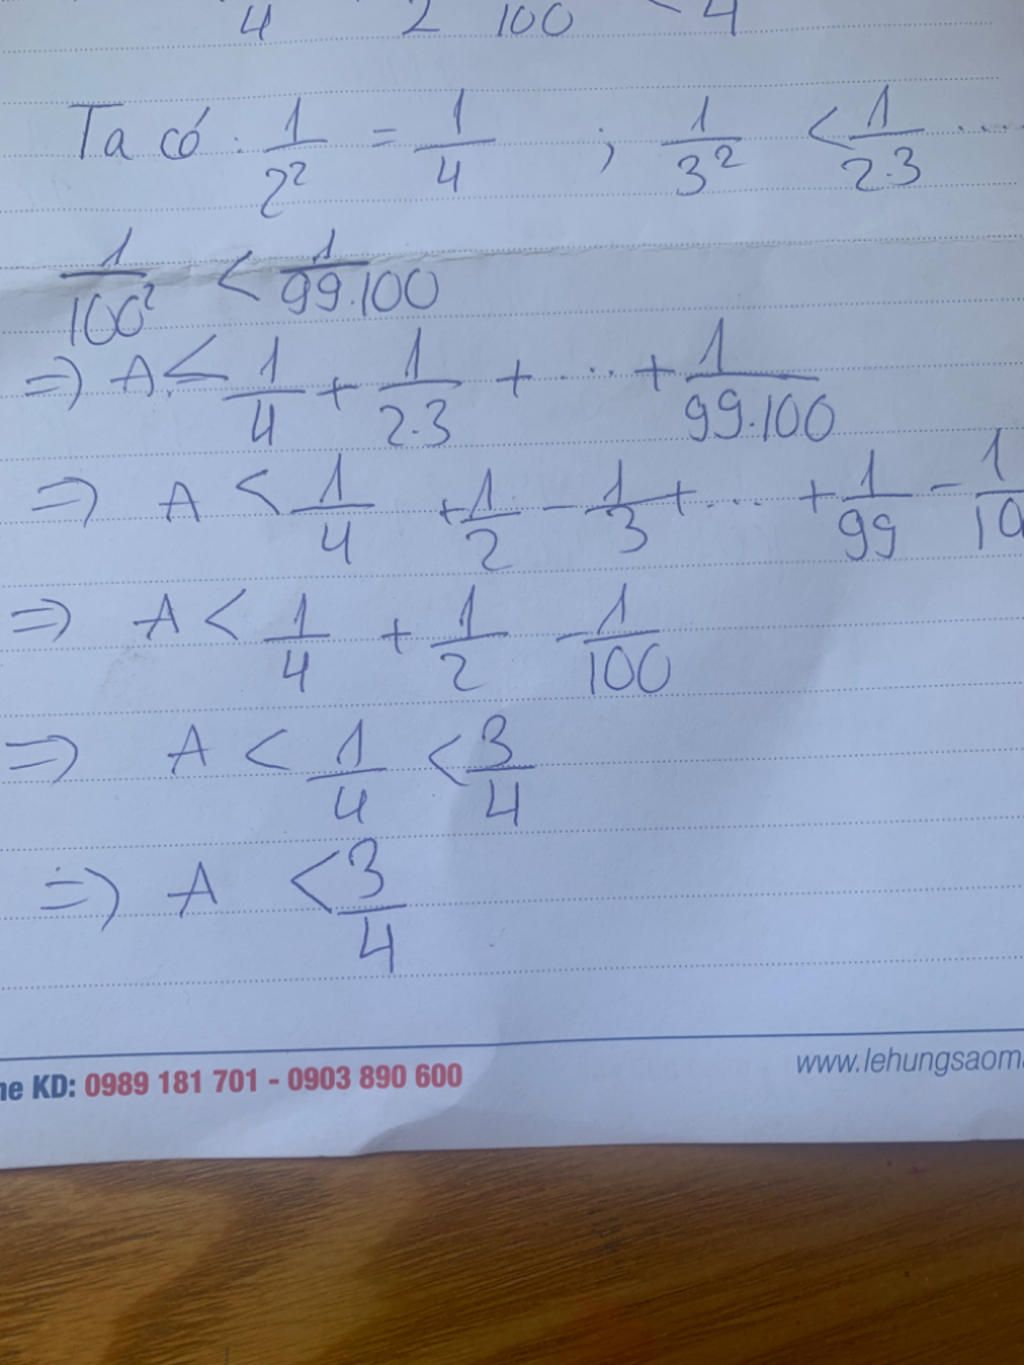 4 2 100 4
Ta có: 1/2² = 1/4 ; 1/3² < 1/2.3 ....
1/100² < 1/99.100
=> A ≤ 1/4 + 1/2.3 + ... + 1/99.100
=> A < 1/4 + 1/2 - 1/3 + ... + 1/99 - 1/10
=> A < 1/4 + 1/2 - 1/100
=> A < 1/4 < 3/4
=> A < 3/4
ne KD: 0989 181 701 - 0903 890 600
www.lehungsaom